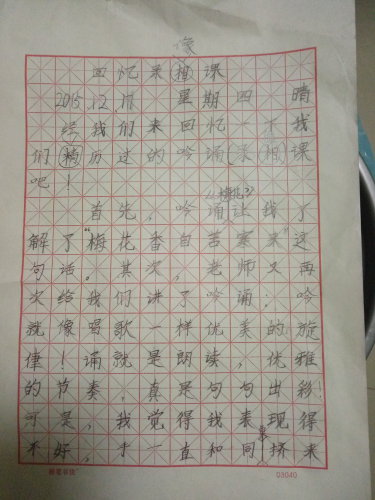 像
回忆录相课
2015.12.17. 星期四 晴
经我们来回忆一下我
们精历过的吟诵(录相)课
吧！
《梅花》
首先，吟诵让我了
解了“梅花香自苦寒来”这
句话。其次，老师又再
次给我们讲了吟诵：吟
就像唱歌一样优美的旋
律！诵就是朗读，优雅
的节奏，真是句句出彩！
可是，我觉得我表现得
不好，手一直和同挤来
03040